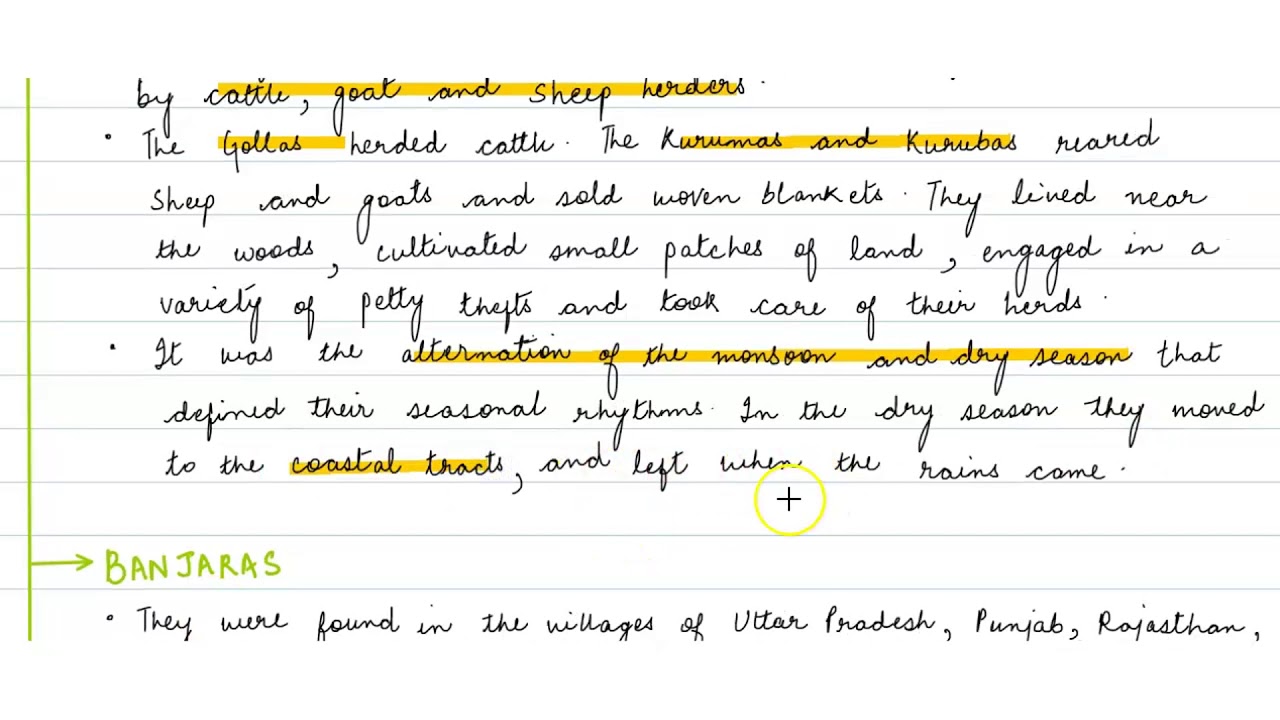 by cattle, goat and sheep herders.
• The Gollas herded cattle. The Kurumas and Kurubas reared
sheep and goats and sold woven blankets. They lived near
the woods, cultivated small patches of land, engaged in a
variety of petty thefts and took care of their herds.
• It was the alternation of the monsoon and dry season that
defined their seasonal rhythms. In the dry season they moved
to the coastal tracts, and left when the rains came.
→ BANJARAS
• They were found in the villages of Uttar Pradesh, Punjab, Rajasthan,